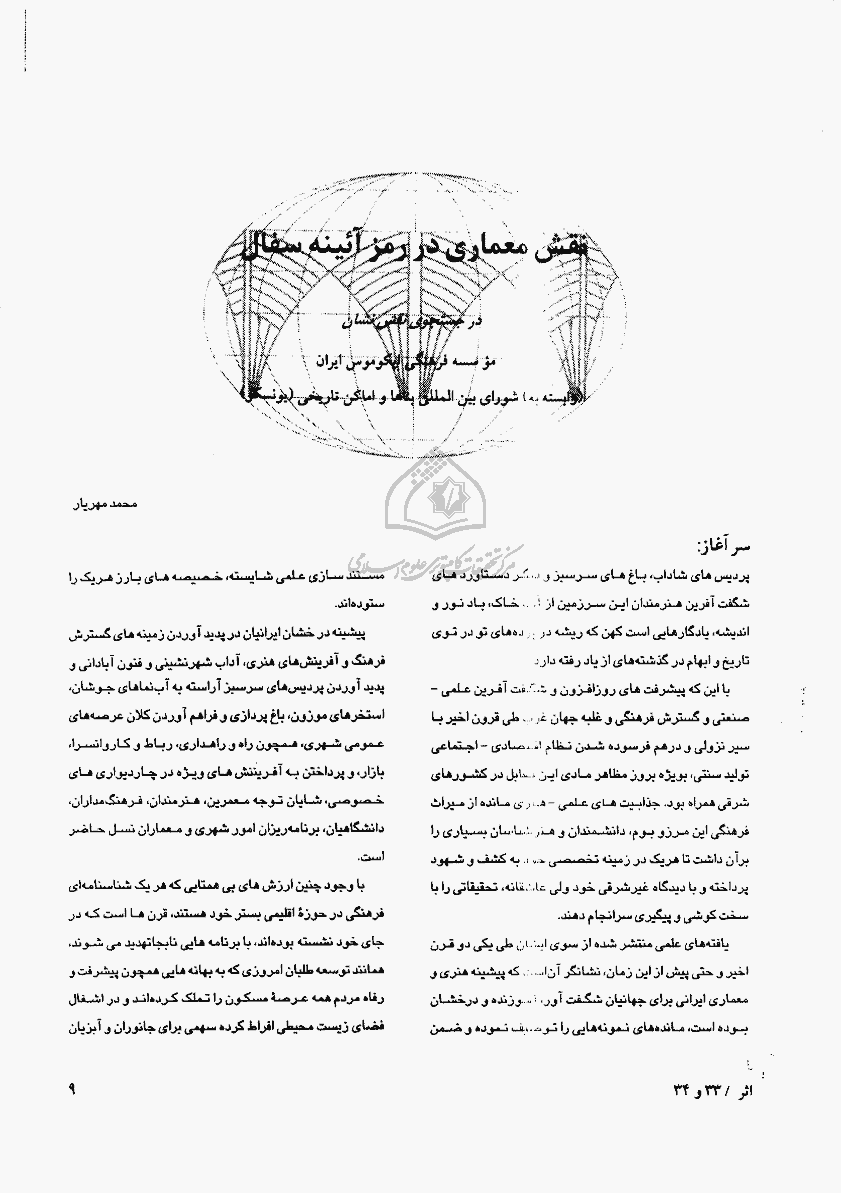 نقش معماری در رمز آئینه سفال
در جستجوی نقش نشان
مؤسسه فرهنگی ایکوموس ایران
(وابسته به) شورای بین المللی بناها و اماکن تاریخی (یونسکو)
محمد مهریار
مرکز تحقیقات کامپیوتری علوم اسلامی
سر آغاز:
پردیس های شاداب، باغ های سرسبز و دیگر دستاوردهای
شگفت آفرین هنرمندان این سرزمین از خاک، باد نور و
اندیشه، یادگارهایی است کهن که ریشه در های تو در توی
تاریخ و ابهام در گذشته‌های از یاد رفته دارد.
با این که پیشرفت های روزافزون و شگفت آفرین علمی -
صنعتی و گسترش فرهنگی و غلبه جهان غرب طی قرون اخیر با
سیر نزولی و درهم فرسوده شدن نظام اقتصادی - اجتماعی
تولید سنتی، بویژه بروز مظاهر مادی این تقابل در کشورهای
شرقی همراه بود. جذابیت های علمی - هنری مانده از میراث
فرهنگی این مرزو بوم، دانشمندان و هنرشناسان بسیاری را
برآن داشت تا هریک در زمینه تخصصی خود به کشف و شهود
پرداخته و با دیدگاه غیرشرقی خود ولی عاشقانه، تحقیقاتی را با
سخت کوشی و پیگیری سرانجام دهند.
یافته‌های علمی منتشر شده از سوی ایشان طی یکی دو قرن
اخیر و حتی پیش از این زمان، نشانگر آن‌است که پیشینه هنری و
معماری ایرانی برای جهانیان شگفت آور، آموزنده و درخشان
بوده است، مانده‌های نمونه‌هایی را توصیف نموده و ضمن
مستند سازی علمی شایسته، خصیصه های بارز هریک را
ستوده‌اند.
پیشینه درخشان ایرانیان در پدید آوردن زمینه های گسترش
فرهنگ و آفرینش‌های هنری، آداب شهرنشینی و فنون آبادانی و
پدید آوردن پردیس‌های سرسبز آراسته به آب‌نماهای جوشان،
استخرهای موزون، باغ پردازی و فراهم آوردن کلان عرصه‌های
عمومی شهری، همچون راه و راهداری، رباط و کاروانسرا،
بازار، و پرداختن به آفرینش های ویژه در چاردیواری های
خصوصی، شایان توجه معمرین، هنرمندان، فرهنگ‌مداران،
دانشگاهیان، برنامه‌ریزان امور شهری و معماران نسل حاضر
است.
با وجود چنین ارزش های بی همتایی که هر یک شناسنامه‌ای
فرهنگی در حوزهٔ اقلیمی بستر خود هستند، قرن ها است که در
جای خود نشسته بوده‌اند، با برنامه هایی نابجاتهدید می شوند،
همانند توسعه طلبان امروزی که به بهانه هایی همچون پیشرفت و
رفاه مردم همه عرصهٔ مسکون را تملک کرده‌اند و در اشغال
فضای زیست محیطی افراط کرده سهمی برای جانوران و آبزیان
اثر / ۳۳ و ۳۴
۹